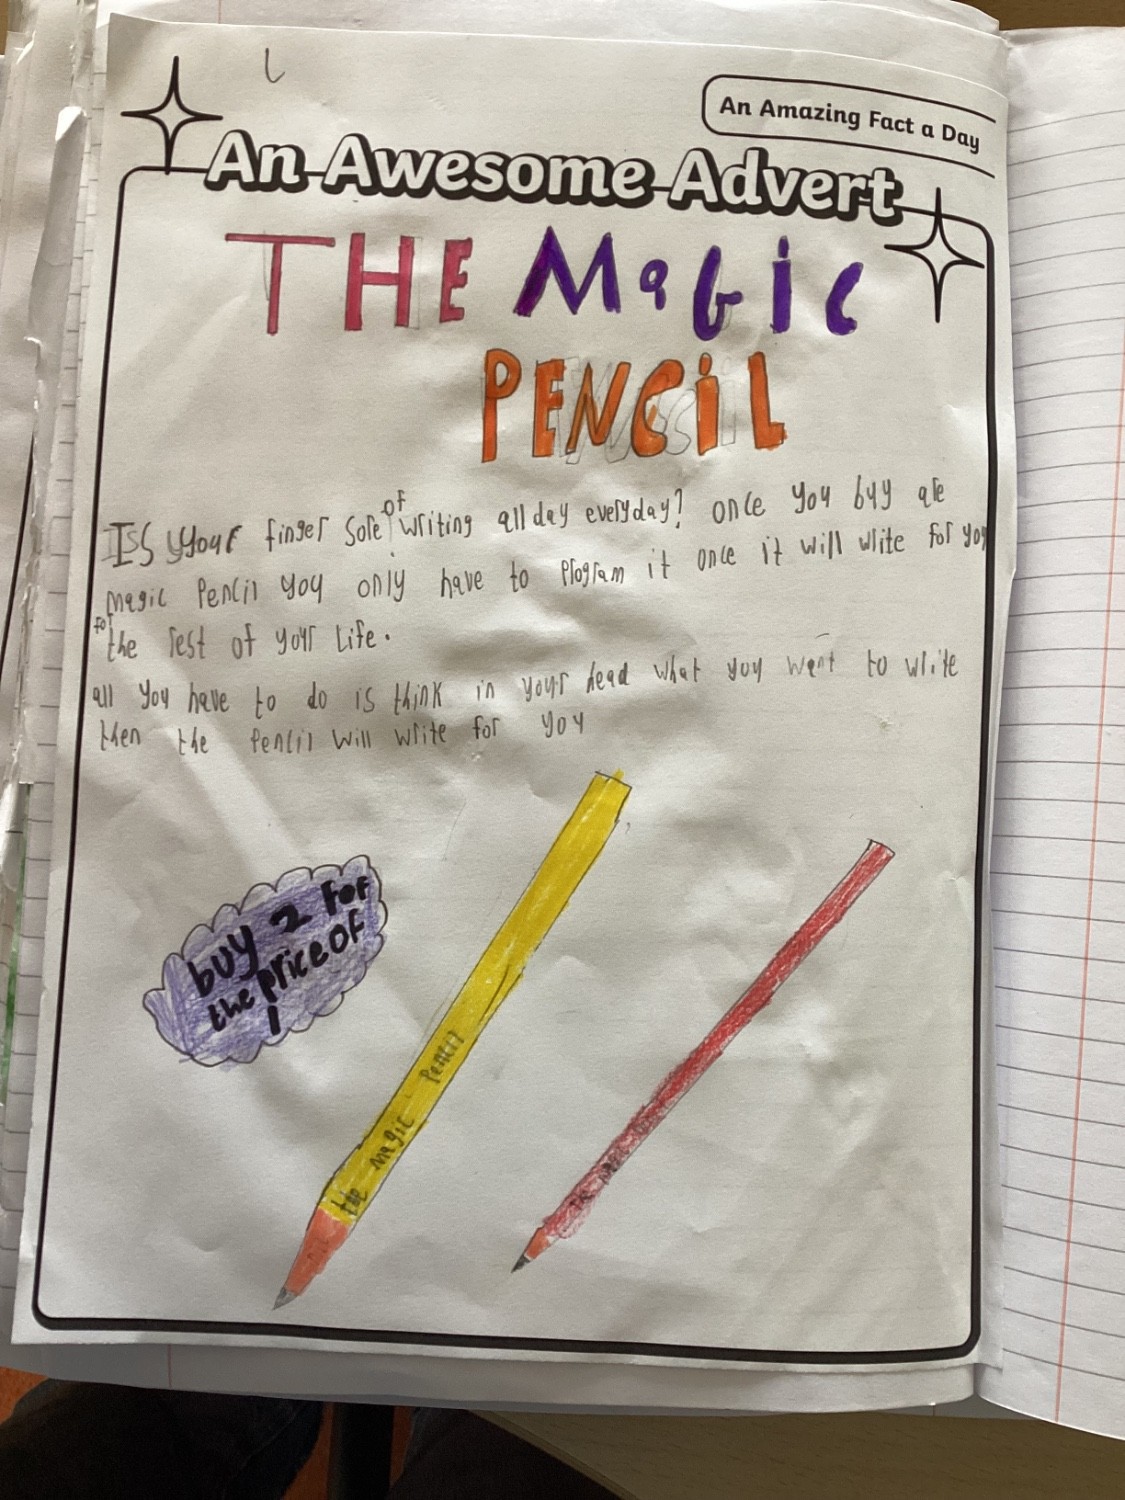 An Amazing Fact a Day
An Awesome Advert
THE MaGiC
PENCiL
Is your finger Sore of writing all day everyday? once you buy are
magic Pencil you only have to Program it once it will write for you
for the rest of your life.
all you have to do is think in your head what you want to write
then the Pencil will write for you
buy 2 For
the price of
1
the magic Pencil